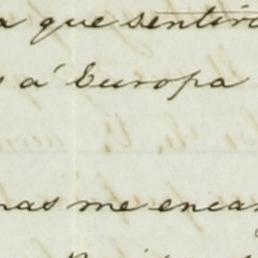 a que sentiro
s a' Europa
nas me encar